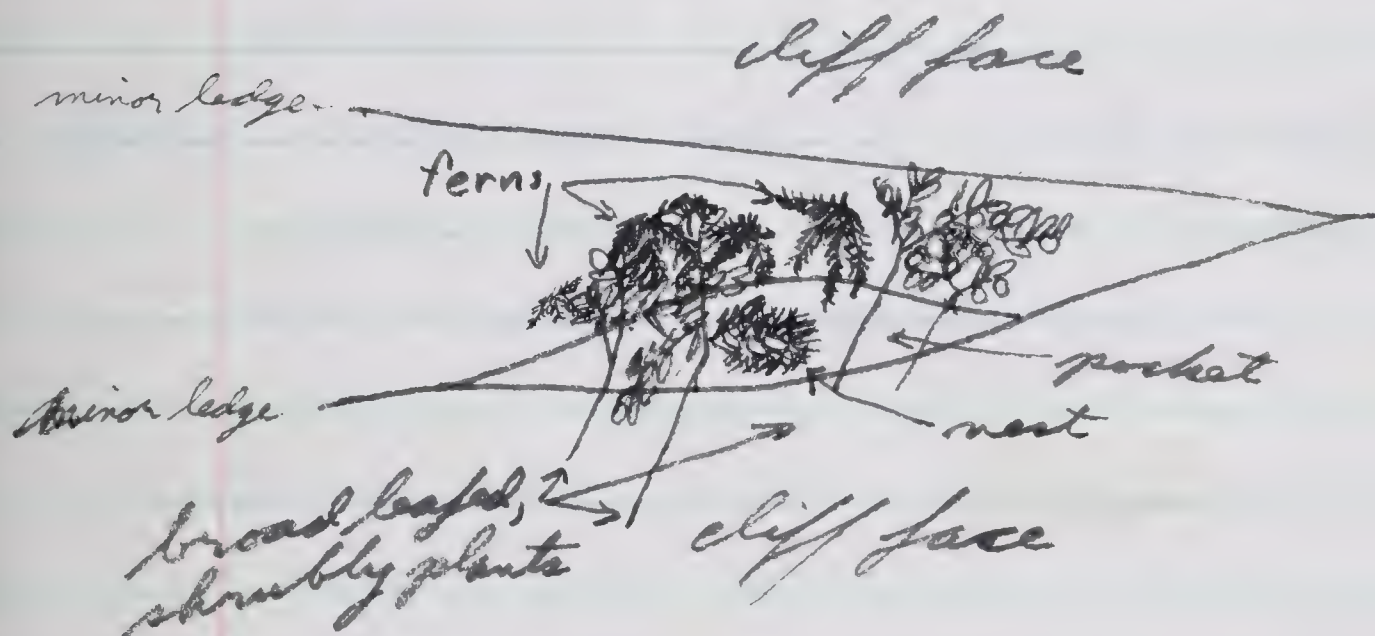 cliff face
minor ledge
ferns
pocket
minor ledge
nest
broad leafed,
shrubby plants
cliff face